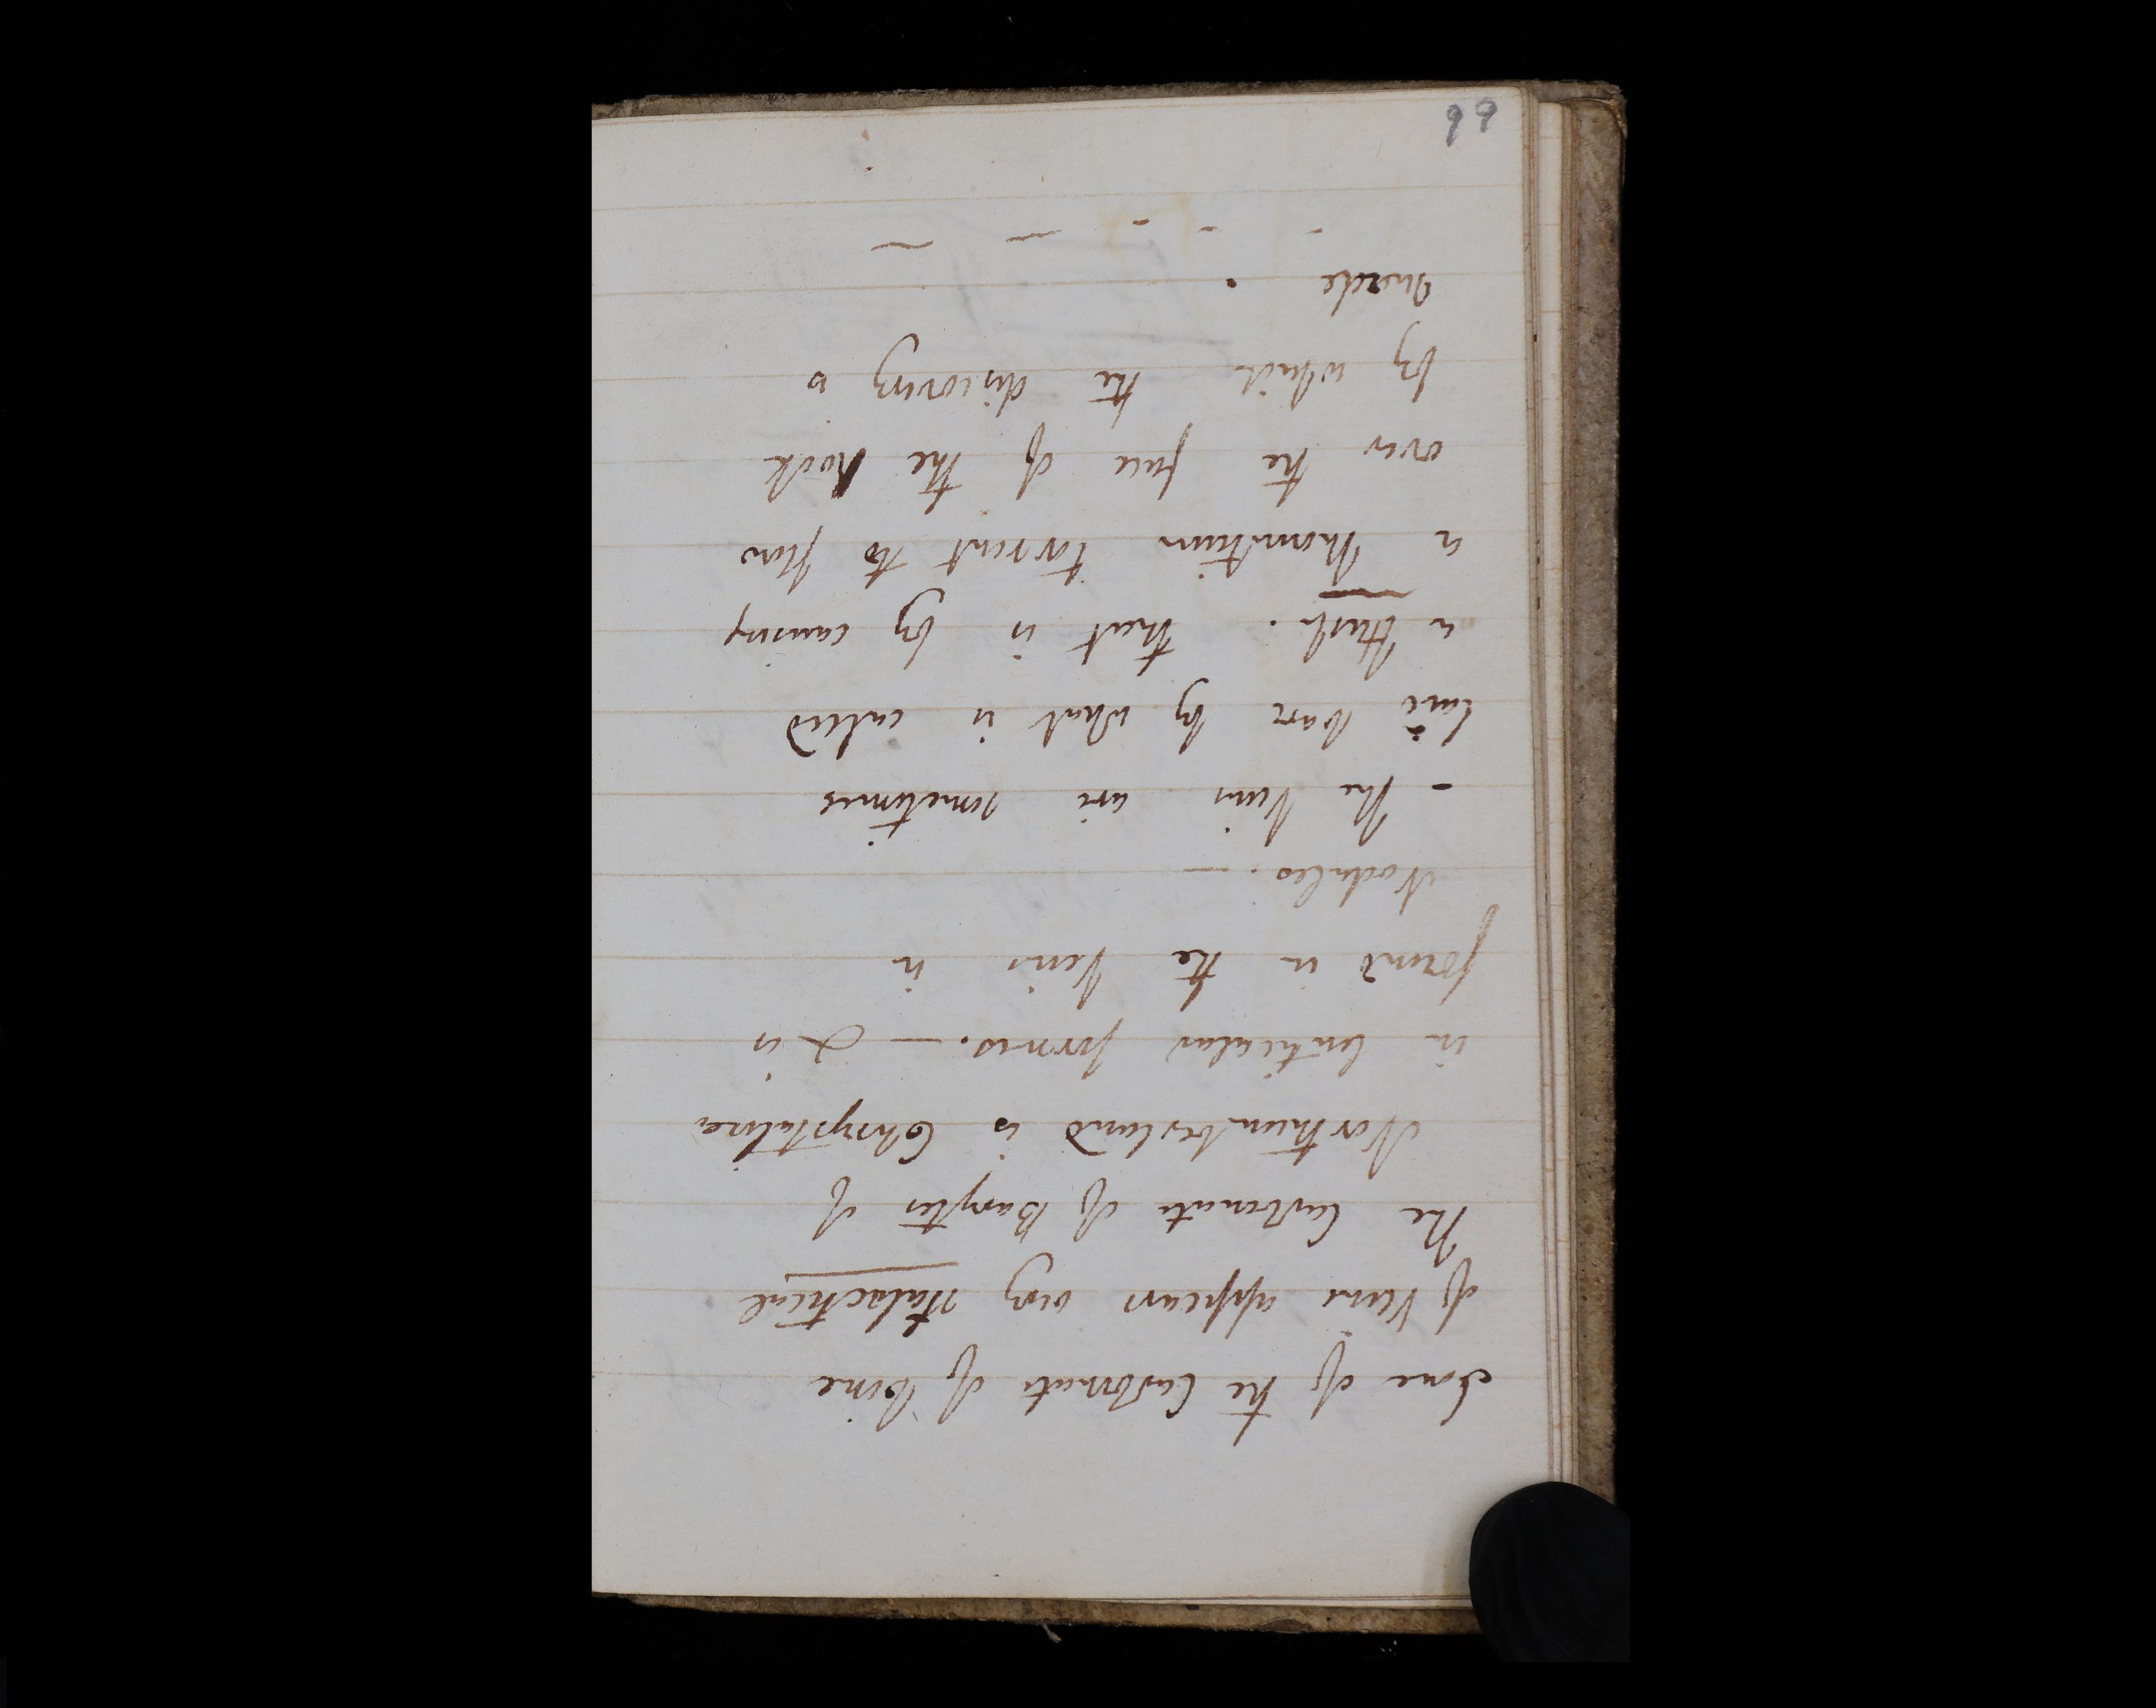 Some of the Carbonate of Lime
of Veins appears very stalactical
The Carbonate of Barytes of
Northumberland is Chrystaline
in lenticular forms. — & is
found in the Veins in
Nodules. —
- The Veins are sometimes
laid bare by what is called
a Hush. that is by causing
a Mountain torrent to flow
over the face of the Rock
by which the discovery is
made.
99